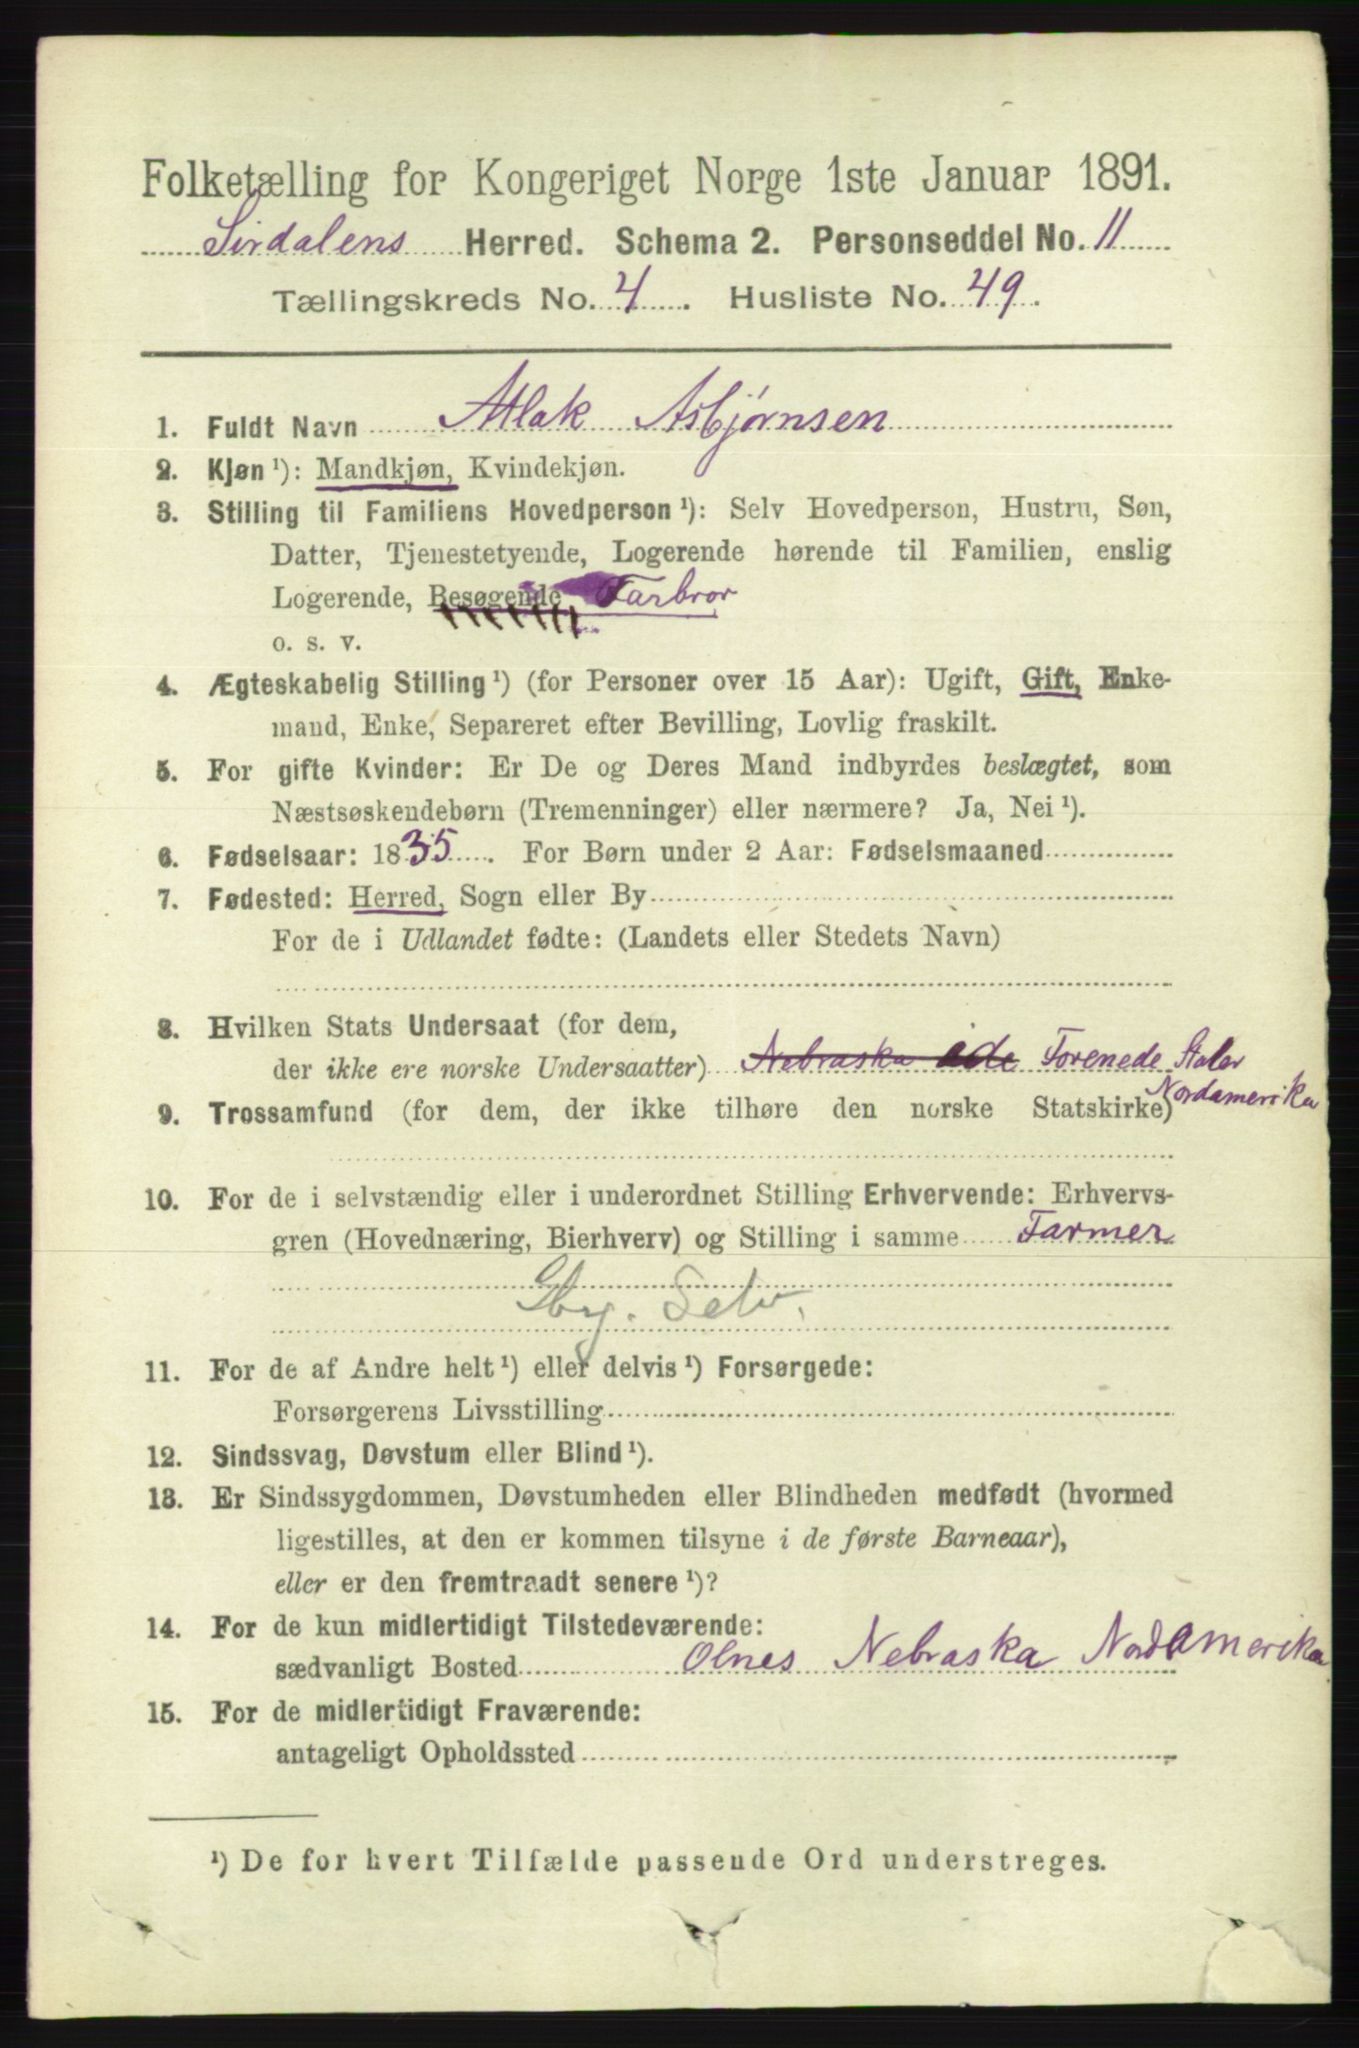 Folketælling for Kongeriget Norge 1ste Januar 1891.
Sirdalens Herred. Schema 2. Personseddel No. 11
Tællingskreds No. 4. Husliste No. 49.
1. Fuldt Navn Atlak Asbjørnsen
2. Kjøn ¹): Mandkjøn, Kvindekjøn.
3. Stilling til Familiens Hovedperson ¹): Selv Hovedperson, Hustru, Søn,
Datter, Tjenestetyende, Logerende hørende til Familien, enslig
Logerende, Besøgende Farbror
o. s. v.
4. Ægteskabelig Stilling ¹) (for Personer over 15 Aar): Ugift, Gift, Enke-
mand, Enke, Separeret efter Bevilling, Lovlig fraskilt.
5. For gifte Kvinder: Er De og Deres Mand indbyrdes beslægtet, som
Næstsøskendebørn (Tremenninger) eller nærmere? Ja, Nei ¹).
6. Fødselsaar: 1835. For Børn under 2 Aar: Fødselsmaaned
7. Fødested: Herred, Sogn eller By
For de i Udlandet fødte: (Landets eller Stedets Navn)
8. Hvilken Stats Undersaat (for dem,
der ikke ere norske Undersaatter) Nebraska i de Forenede Stater
Nordamerika
9. Trossamfund (for dem, der ikke tilhøre den norske Statskirke)
10. For de i selvstændig eller i underordnet Stilling Erhvervende: Erhvervs-
gren (Hovednæring, Bierhverv) og Stilling i samme Farmer
Selv.
11. For de af Andre helt ¹) eller delvis ¹) Forsørgede:
Forsørgerens Livsstilling
12. Sindssvag, Døvstum eller Blind ¹).
13. Er Sindssygdommen, Døvstumheden eller Blindheden medfødt (hvormed
ligestilles, at den er kommen tilsyne i de første Barneaar),
eller er den fremtraadt senere ¹)?
14. For de kun midlertidigt Tilstedeværende:
sædvanligt Bosted Olnes Nebraska Nordamerika
15. For de midlertidigt Fraværende:
antageligt Opholdssted
¹) De for hvert Tilfælde passende Ord understreges.